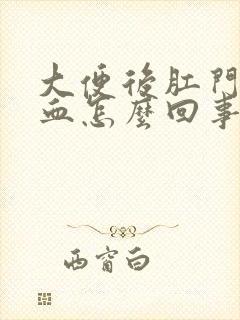 大便後肛門
血怎麼回事
西窗白